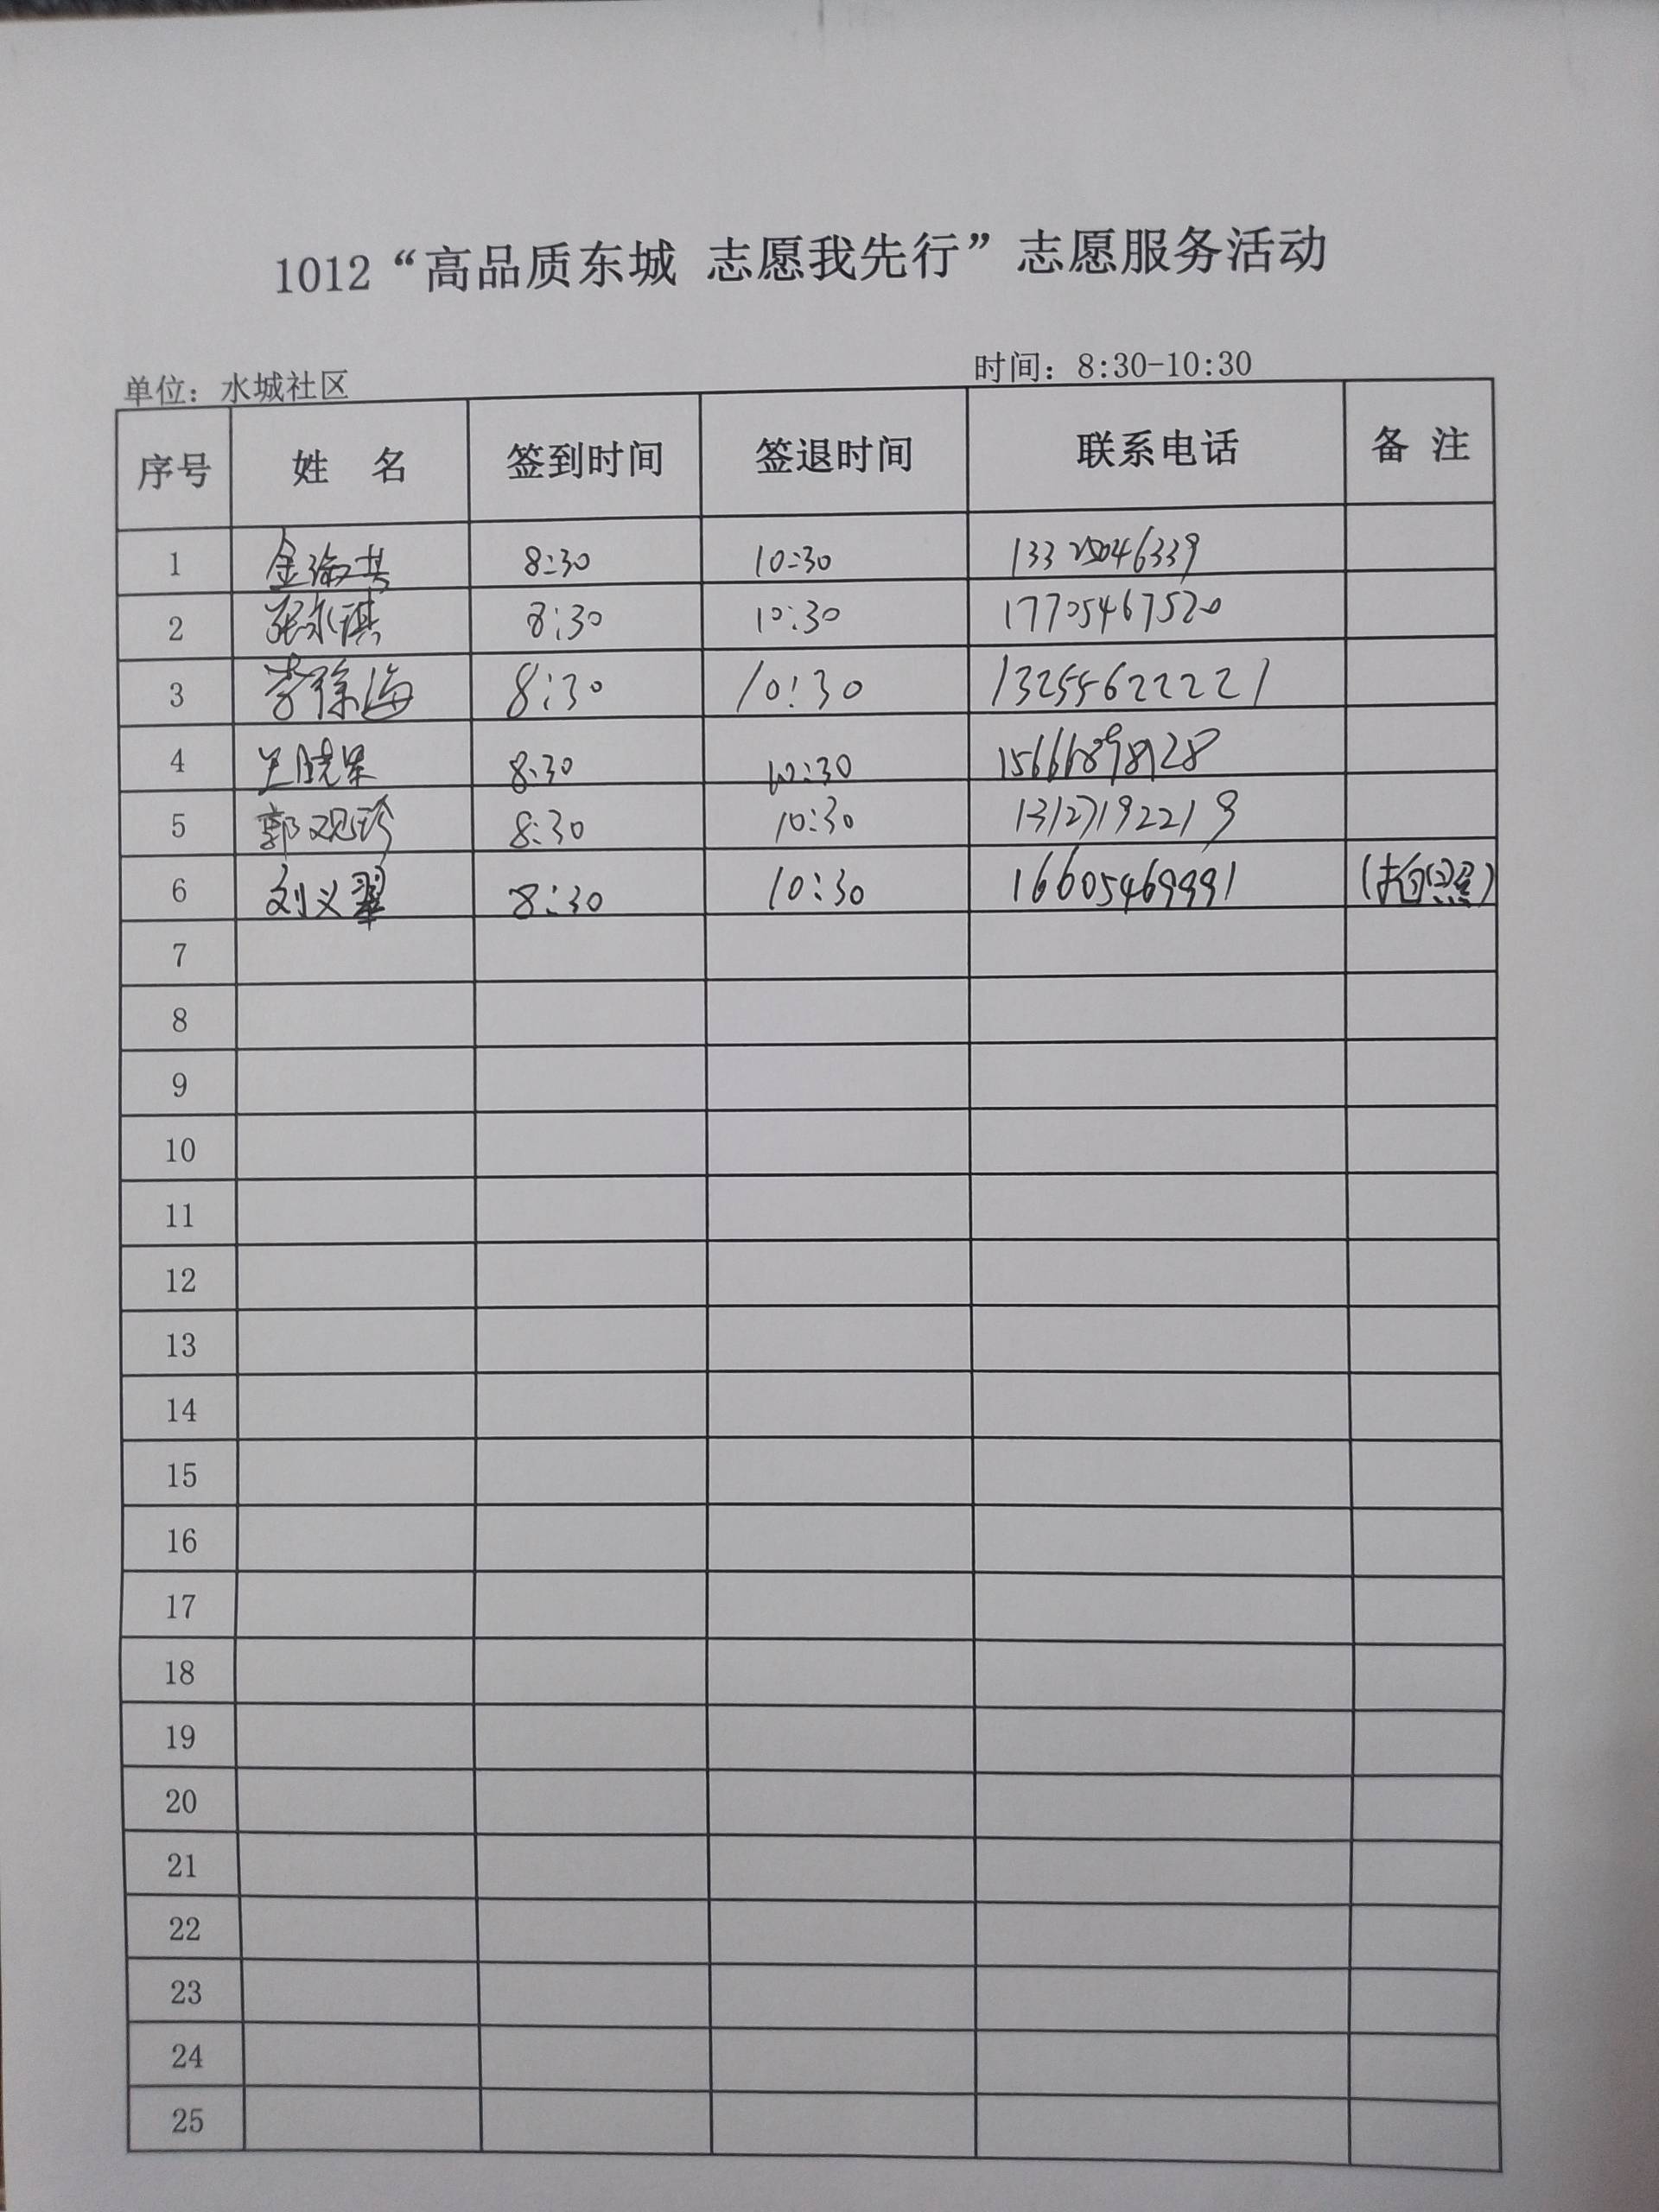 1012“高品质东城 志愿我先行”志愿服务活动
单位：水城社区 时间：8:30-10:30
序号 姓 名 签到时间 签退时间 联系电话 备 注
1 8:30 10:30 13325046339
2 张永琪 8:30 10:30 17705467520
3 李徐海 8:30 10:30 13255622221
4 王晓军 8:30 10:30
5 郭观珍 8:30 10:30 13127192219
6 刘义翠 8:30 10:30 16605469991 (拍照)
7
8
9
10
11
12
13
14
15
16
17
18
19
20
21
22
23
24
25